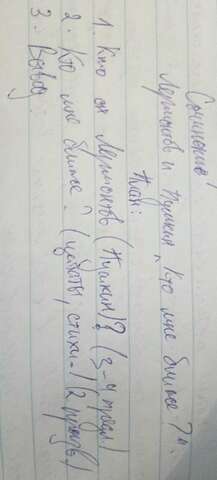 Сочинение
Лермонтов и Пушкин „Кто мне ближе?".
План:
1. Кто он Лермонтов (Пушкин)? (3-4 предл.)
2. Кто мне ближе? (цитаты, стихи -
3. Вывод